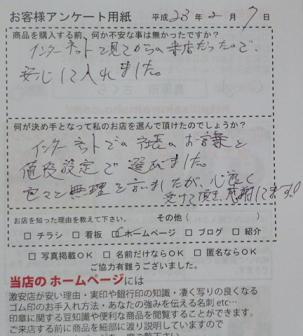 お客様アンケート用紙 平成 23 年 2 月 7 日
商品を購入する前、何か不安な事は無かったですか?
インターネットで見てからの来店だったので、
安心して入れました。
何が決め手となって私のお店を選んで頂けたのでしょうか?
インターネットでの社長のお言葉と
価格設定で選びました。
色々無理を言いましたが、心良く
受けて頂き感謝してます!
お店を知った理由を教えて下さい。 その他( )
□ チラシ □ 看板 ☑ ホームページ □ ブログ □ 紹介
□ 写真掲載OK □ 名前だけならOK □ 匿名ならOK
ご協力有難うございました。
当店の ホームページには
激安店が安い理由・実印や銀行印の知識・凄く写りの良くなる
ゴム印のお手入れ方法・あなたの強みを伝える名刺 etc…
印章に関する豆知識や便利な商品を閲覧することができます。
ご来店する前に商品を細部に渡り説明していますので